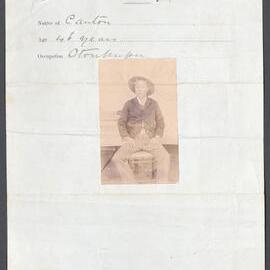 Native of Canton
Age 46 years
Occupation Storekeeper